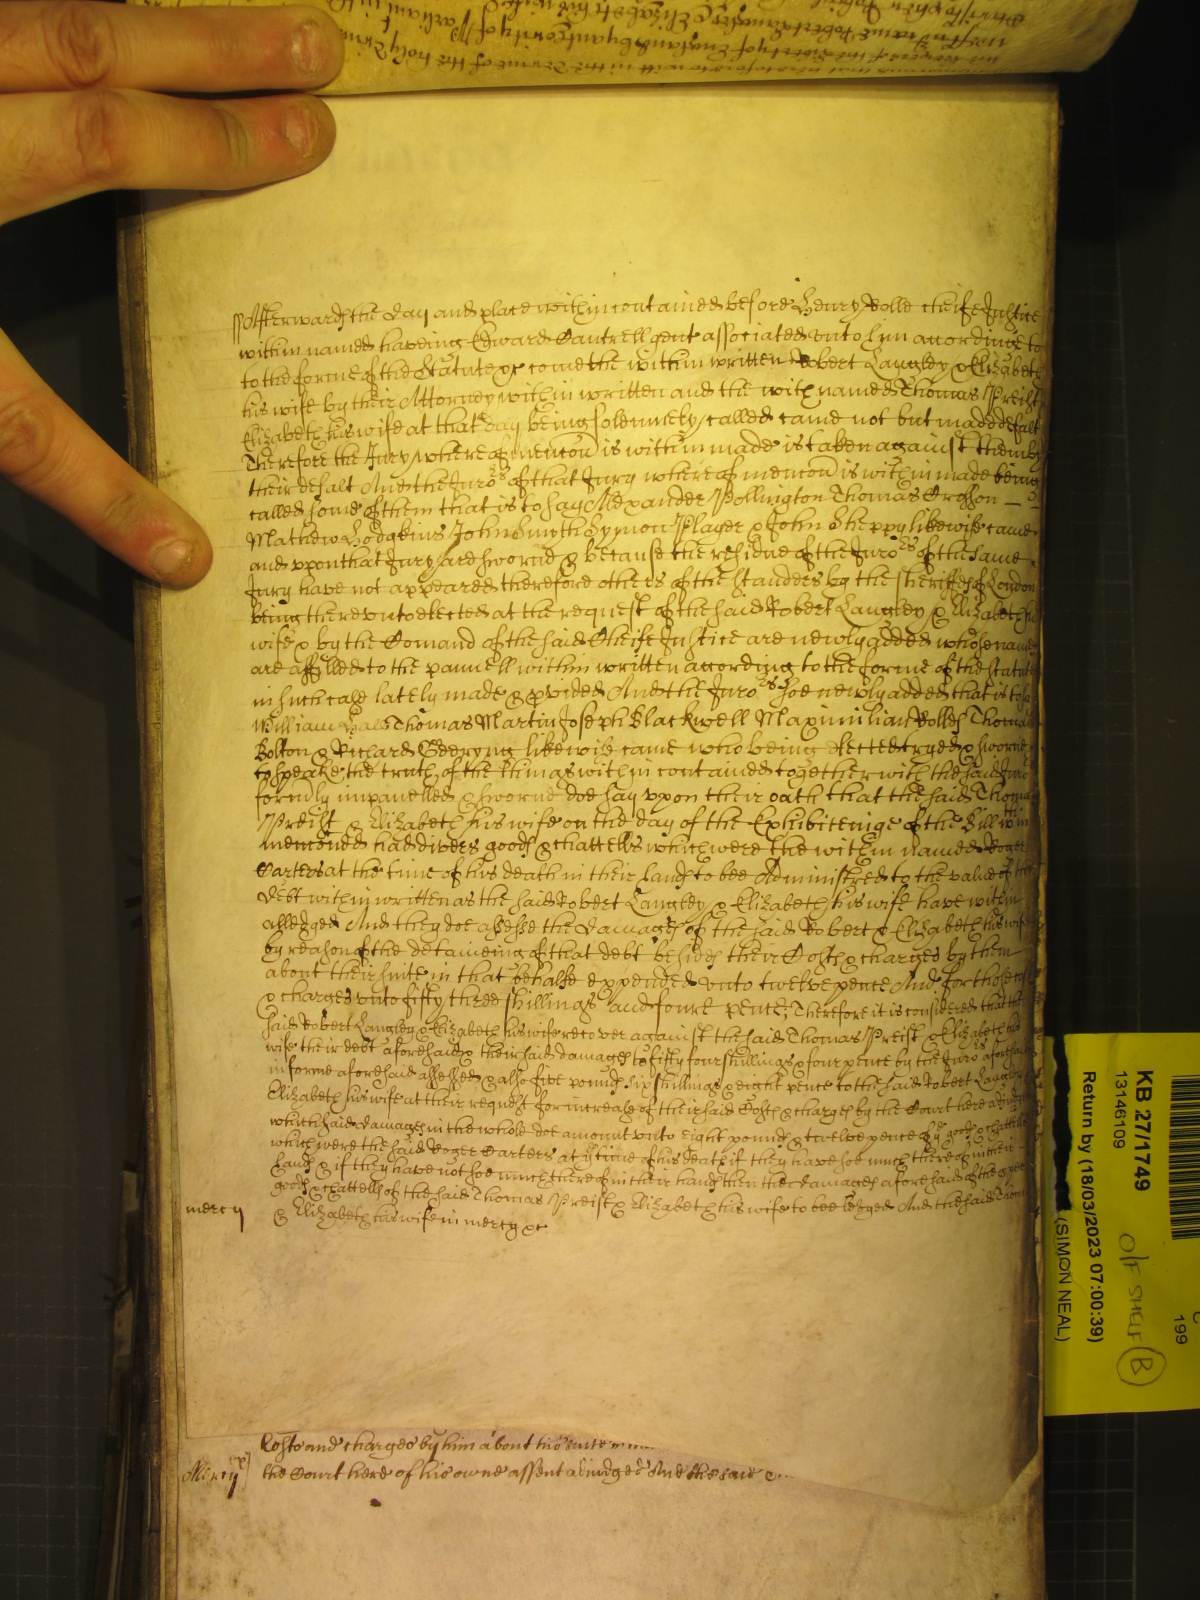 Afterwards the day and place within contained before Henry Rolle cheife Justice
within named haveing Edward Cantrell gent associated unto him according to
to the forme of the Statute &c come the within written Robert Langley & Elizabeth
his wife by their Attorney within written and the with named Thomas Preist
Elizabeth his wife at that day being solemnely called came not but made defalt
Therefore the Jury whereof mencon is within made is taken against them by
their defalt And the Juro:rs of that Jury whereof mencon is within made being
called some of them that is to say Alexander Pollington Thomas Crosson
Mathew Hodgkins John Smyth Symon Player & John Sheppy likewise came
and upon that Jury are sworne & because the residue of the Juro:rs of the same
Jury have not appeared therefore others of the standers by the sheriffes of London
being thereunto elected at the request of the said Robert Langley & Elizabeth his
wife & by the Comand of the said Cheife Justice are newly added whose names
are affiled to the pannell within written according to the forme of the statute
in such case lately made & provided And the Juro:rs soe newly added that is to say
William Hall Thomas Martin Joseph Blackwell Maximilian Rolles Thomas
Bolton & Richard likewise came who being elected tryed & sworne
to speake the truth of the things within contained together with the said Juro
formerly impanelled & sworne doe say upon their oath that the said Thomas
Preist & Elizabeth his wife on the day of the Exhibiteinge of the Bill within
menconed had divers goods & chattells which were the within named Roger
Carters at the time of his death in their hands to bee Administred to the value of the
debt within written as the said Robert Langley & Elizabeth his wife have within
alledged And they doe assesse the damages of the said Robert & Elizabeth his wife
by reason of the detaineing of that debt besides their Costs & charges by them
about their suite in that behalfe expended unto twelve pence And for those costs
& charges unto fifty three shillings and foure pence; Therefore it is considered that the
said Robert Langley & Elizabeth his wife recover against the said Thomas Preist & Elizabeth his
wife their debt aforesaid & their said damages to fifty four shillings & four pence by the Juro:rs aforesaid
in forme aforesaid assessed & also five pounds six shillings & eight pence to the said Robert Langley
Elizabeth his wife at their request for increase of their said Costs & charges by the Court here adjudged
which said damages in the whole doe amount unto eight pounds & twelve pence of ye goods & chattells
which were the said Roger Carters at ye time of his death if they have soe much thereof in their
hands & if they have not soe much thereof in their hands then the damages aforesaid of the proper
goods & chattells of the said Thomas Preist & Elizabeth his wife to bee levyed And the said Thomas
mercy & Elizabeth his wife in mercy &c
Costs and charges by him about his suite in
Mercy the Court here of his owne assent adiudged And the said
KB 27/1749
13146109
Return by (18/03/2023 07:00:39)
(SIMON NEAL)
O/F SHELF B
199